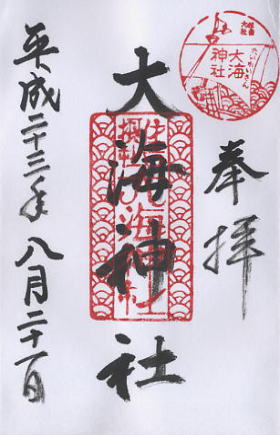 奉拝
住吉大社
大海
神社
大海神社
平成二十三年八月二十一日